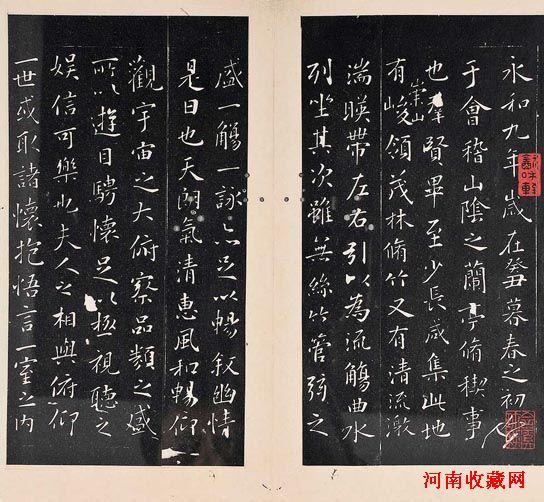 永和九年歲在癸丑暮春之初會
于會稽山陰之蘭亭脩稧事
也羣賢畢至少長咸集此地
有崇山峻領茂林脩竹又有清流激
湍暎帶左右引以為流觴曲水
列坐其次雖無絲竹管弦之
盛一觴一詠亦足以暢敘幽情
是日也天朗氣清惠風和暢仰
觀宇宙之大俯察品類之盛
所以遊目騁懷足以極視聽之
娛信可樂也夫人之相與俯仰
一世或取諸懷抱悟言一室之內
河南收藏网